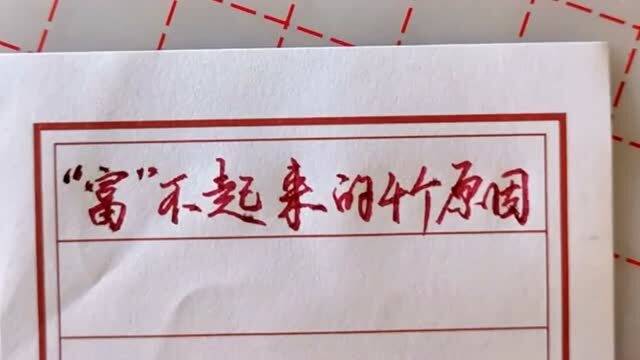 “富”不起来的4个原因